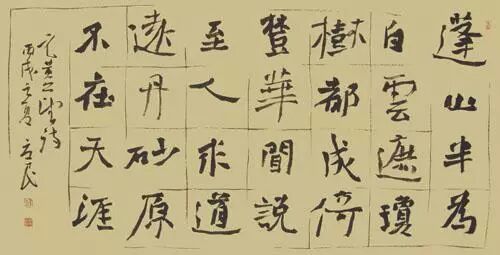 蓬山半為
白雲遮瓊
樹都成倚
華聞說
至人求道
遠丹砂原
不在天涯
元黄公望詩
丙戌之夏